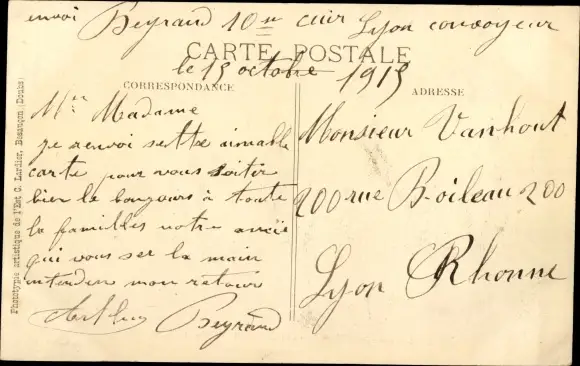 envoi Beyrand 10me cuir Lyon convoyeur
CARTE POSTALE
le 15 octobre 1915
CORRESPONDANCE
Mr Madame
je renvoi sette aimable
carte pour vous soitir
bien le bonjours à toute
la familles votre amie
qui vous ser la main
entenden mon retour
Arthur Beyrand
ADRESSE
Monsieur Vanhout
200 rue Boileau 200
Lyon Rhonne
Phototypie artistique de l'Est C. Lardier, Besançon (Doubs)